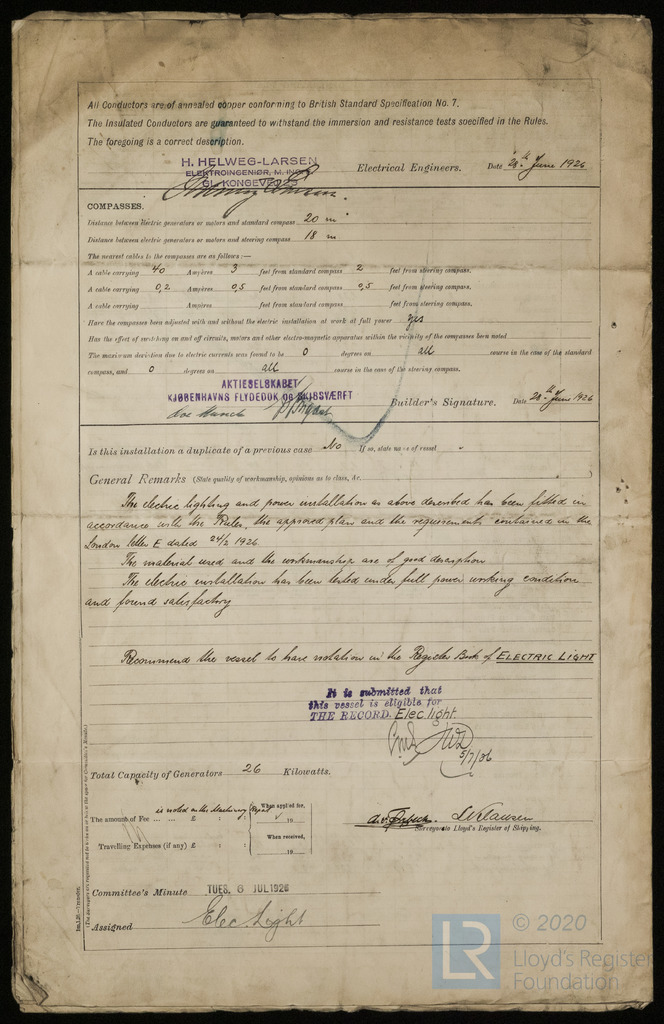 All Conductors are of annealed copper conforming to British Standard Specification No. 7.
The Insulated Conductors are guaranteed to withstand the immersion and resistance tests specified in the Rules.
The foregoing is a correct description.
H. HELWEG-LARSEN
ELEKTROINGENIØR, M. ING.
GL. KONGEVEJ
Electrical Engineers. Date 28th June 1926
COMPASSES.
Distance between electric generators or motors and standard compass 20 m
Distance between electric generators or motors and steering compass 18 m
The nearest cables to the compasses are as follows:—
A cable carrying 40 Ampères 3 feet from standard compass 2 feet from steering compass.
A cable carrying 0,2 Ampères 0,5 feet from standard compass 0,5 feet from steering compass.
A cable carrying Ampères feet from standard compass feet from steering compass.
Have the compasses been adjusted with and without the electric installation at work at full power yes
Has the effect of switching on and off circuits, motors and other electro-magnetic apparatus within the vicinity of the compasses been noted
The maximum deviation due to electric currents was found to be 0 degrees on all course in the case of the standard
compass, and 0 degrees on all course in the case of the steering compass.
AKTIESELSKABET
KJØBENHAVNS FLYDEDOK OG SKIBSVÆRFT
Builder's Signature. Date 28th June 1926
Is this installation a duplicate of a previous case No If so, state name of vessel "
General Remarks (State quality of workmanship, opinions as to class, &c. )
The electric lighting and power installation as above described has been fitted in
accordance with the Rules, the approved plan and the requirements contained in the
London letter E dated 24/2 1926
The material used and the workmanship are of good description
The electric installation has been tested under full power working condition
and found satisfactory
Recommend the vessel to have notation in the Register Book of ELECTRIC LIGHT
It is submitted that
this vessel is eligible for
THE RECORD. Elec. light.
5/7/26
Total Capacity of Generators 26 Kilowatts.
is noted on the Machinery Report
The amount of Fee ... ... £ : : When applied for,
19
Travelling Expenses (if any) £ : : When received,
19
Surveyors to Lloyd's Register of Shipping.
Committee's Minute TUES. 6 JUL 1926
Assigned Elec Light
© 2020
LR Lloyd's Register
Foundation